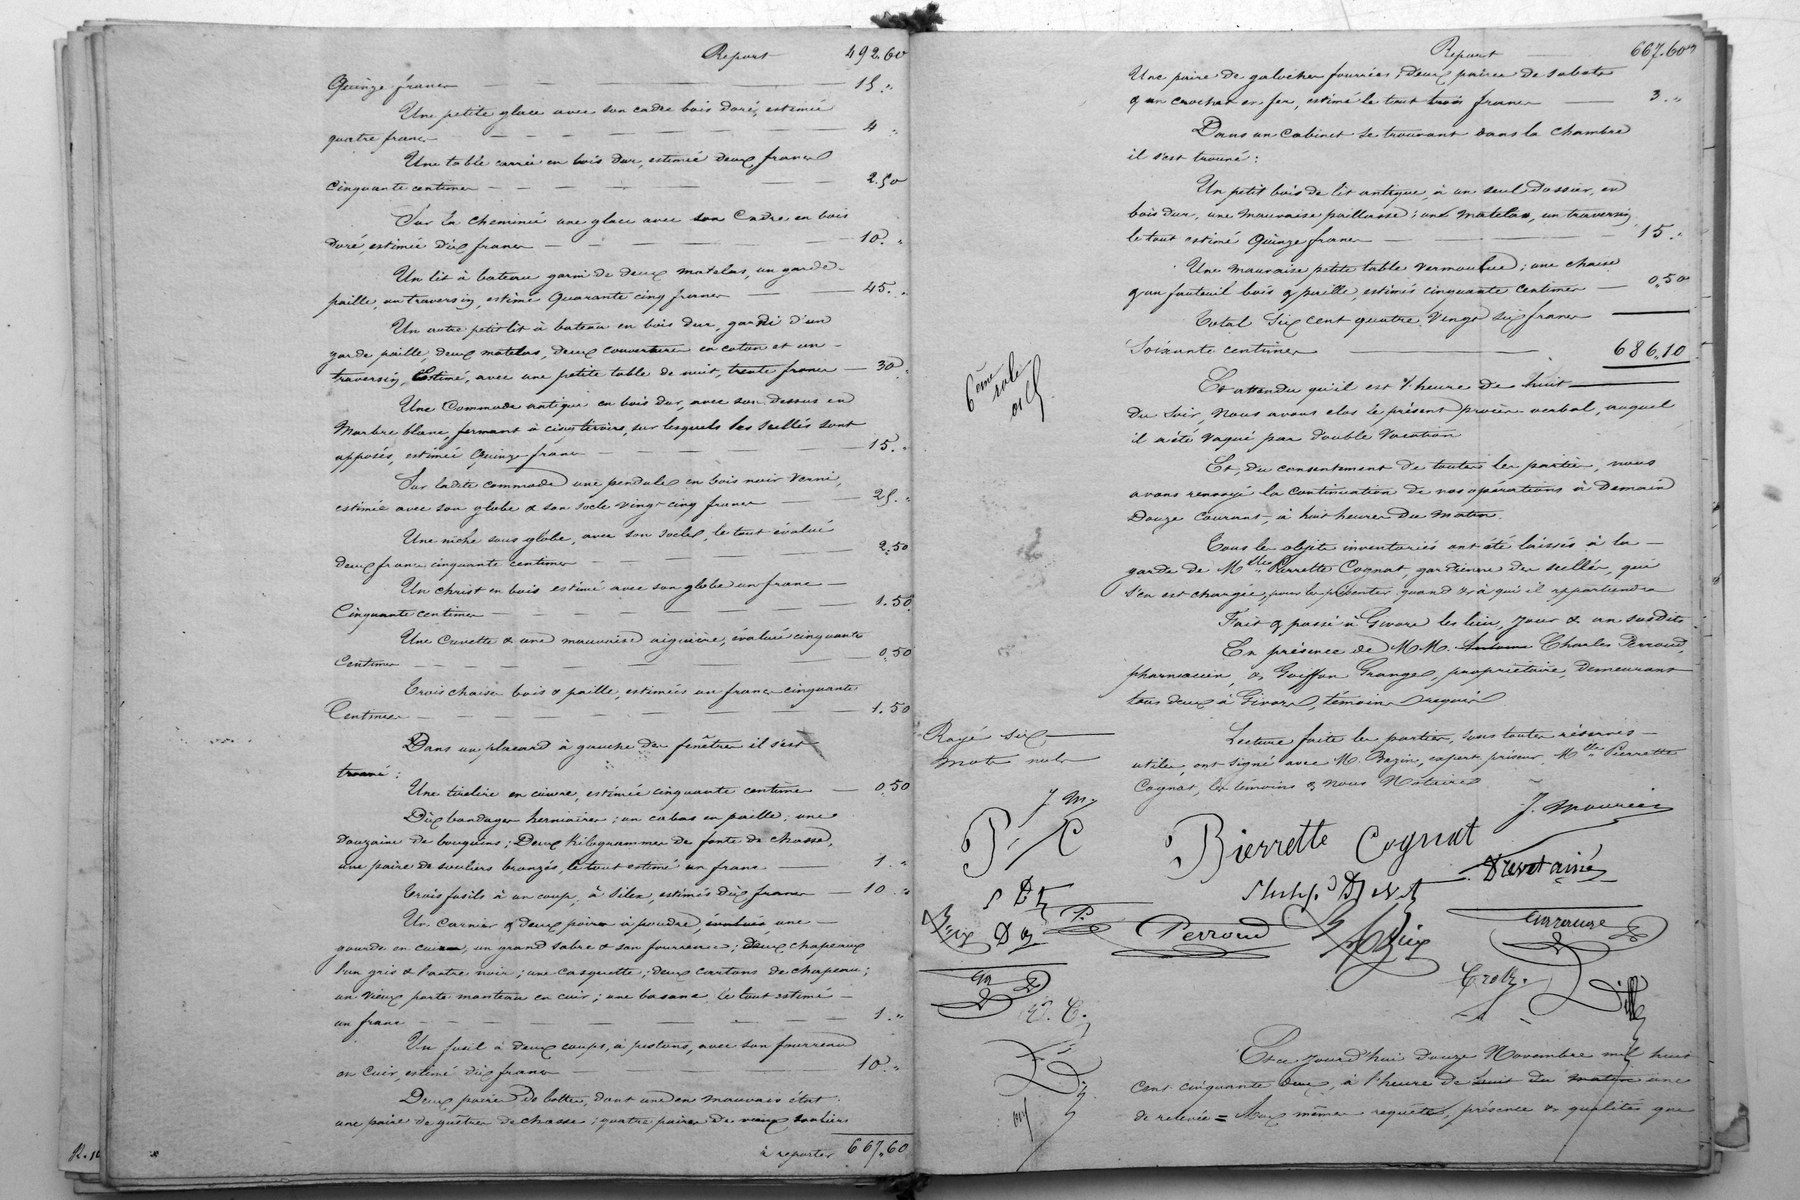 Report 492.60
Quinze francs 15.„
Une petite glace avec son cadre bois doré, estimée
quatre francs 4 „
Une table carrée en bois dur, estimée deux francs
cinquante centimes 2.50
Sur la cheminée une glace avec son cadre en bois
doré, estimée dix francs 10.„
Un lit à bateau garni de deux matelas, un garde-
paille, un traversin, estimé quarante cinq francs 45.„
Un autre petit lit à bateau en bois dur, garni d'un
garde paille, deux matelas, deux couvertures en coton et un
traversin, Estimé, avec une petite table de nuit, trente francs 30.„
Une Commode antique en bois dur, avec son dessus en
marbre blanc, fermant à cinq tiroirs, sur lesquels les scellés sont
apposés, estimée Quinze francs 15.„
Sur ladite commode une pendule en bois noir verni,
estimée avec son globe & son socle vingt cinq francs 25.„
Une niche sous globe, avec son socle, le tout évalué
deux francs cinquante centimes 2.50
Un christ en bois estimé avec son globe un franc
Cinquante centimes 1.50
Une Cuvette & une mauvaise aiguière, évaluées cinquante
Centimes 0.50
Trois chaises bois & paille, estimées un franc cinquante
Centimes 1.50
Dans un placard à gauche des fenêtres il s'est
trouvé :
Une tirelire en cuivre, estimée cinquante centimes 0.50
Dix bandages herniaires ; un cabas en paille ; une
douzaine de bouquins ; Deux kilogrammes de fonte de chasse,
une paire de souliers bronzés, le tout estimé un franc 1.„
Trois fusils à un coup, à silex, estimés dix francs 10.„
Un Carnier & deux poires à poudre, évalués une
gourde en cuir, un grand sabre & son fourreau ; deux chapeaux
l'un gris & l'autre noir ; une casquette ; deux cartons de chapeau ;
un vieux porte manteau en cuir ; une basane le tout estimé
un franc 1.„
Un fusil à deux coups, à pistons, avec son fourreau
en cuir, estimé dix francs 10.„
Deux paires de bottes, dont une en mauvais état ;
une paire de guêtres de chasse ; quatre paires de vieux souliers
à reporter 667.60
Report 667.60
Une paire de galoches fourrées, deux paires de sabots
& un crochet en fer, estimé le tout trois francs 3.„
Dans un Cabinet se trouvant dans la chambre
il s'est trouvé :
Un petit bois de lit antique, à un seul dossier, en
bois dur, une mauvaise paillasse ; un matelas, un traversin
le tout estimé Quinze francs 15.„
Une mauvaise petite table vermoulue ; une chaise
& un fauteuil bois & paille, estimés cinquante Centimes 0.50
Total Six cent quatre vingt six francs
Soixante centimes 686.10
6ème rôle
Et attendu qu'il est l'heure de huit
du soir, Nous avons clos le présent procès-verbal, auquel
il a été vaqué par double vacation
Et, du consentement de toutes les parties, nous
avons renvoyé la continuation de nos opérations à Demain
Douze courant, à huit heures du matin.
Tous les objets inventoriés ont été laissés à la
garde de Mlle Pierrette Cognat, gardienne des scellés, qui
s'en est chargée, pour les présenter quand & à qui il appartiendra
Fait & passé à Givors les lieu, jour & an susdits
En présence de MM. Antoine Charles Perroud,
pharmacien, & Goiffon Grangé, propriétaire, demeurant
tous deux à Givors, témoins requis
Lecture faite les parties, sous toutes réserves
utiles, ont signé avec M. Bazin, expert priseur, Mlle Pierrette
Cognat, les témoins & nous Notaires
Rayé six
mots nuls
J. M.
P. C
Pierrette Cognat
Drevet ainé
Perroud
Et ce jourd'hui douze Novembre mil huit
cent cinquante deux, à l'heure de huit du matin une
de relevée = Aux mêmes requêtes, présence & qualités que